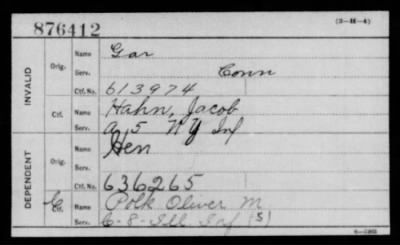 876412
(3-H-4)
INVALID
Orig.
Name Gar
Serv. Conn
Ctf. No. 613974
Ctf.
Name Hahn, Jacob
Serv. A, 5 NY Inf
DEPENDENT
Orig.
Name Hen
Serv.
Ctf. No. 636265
C Ctf.
Name Polk Oliver M
Serv. C-8-Ill Inf (S)